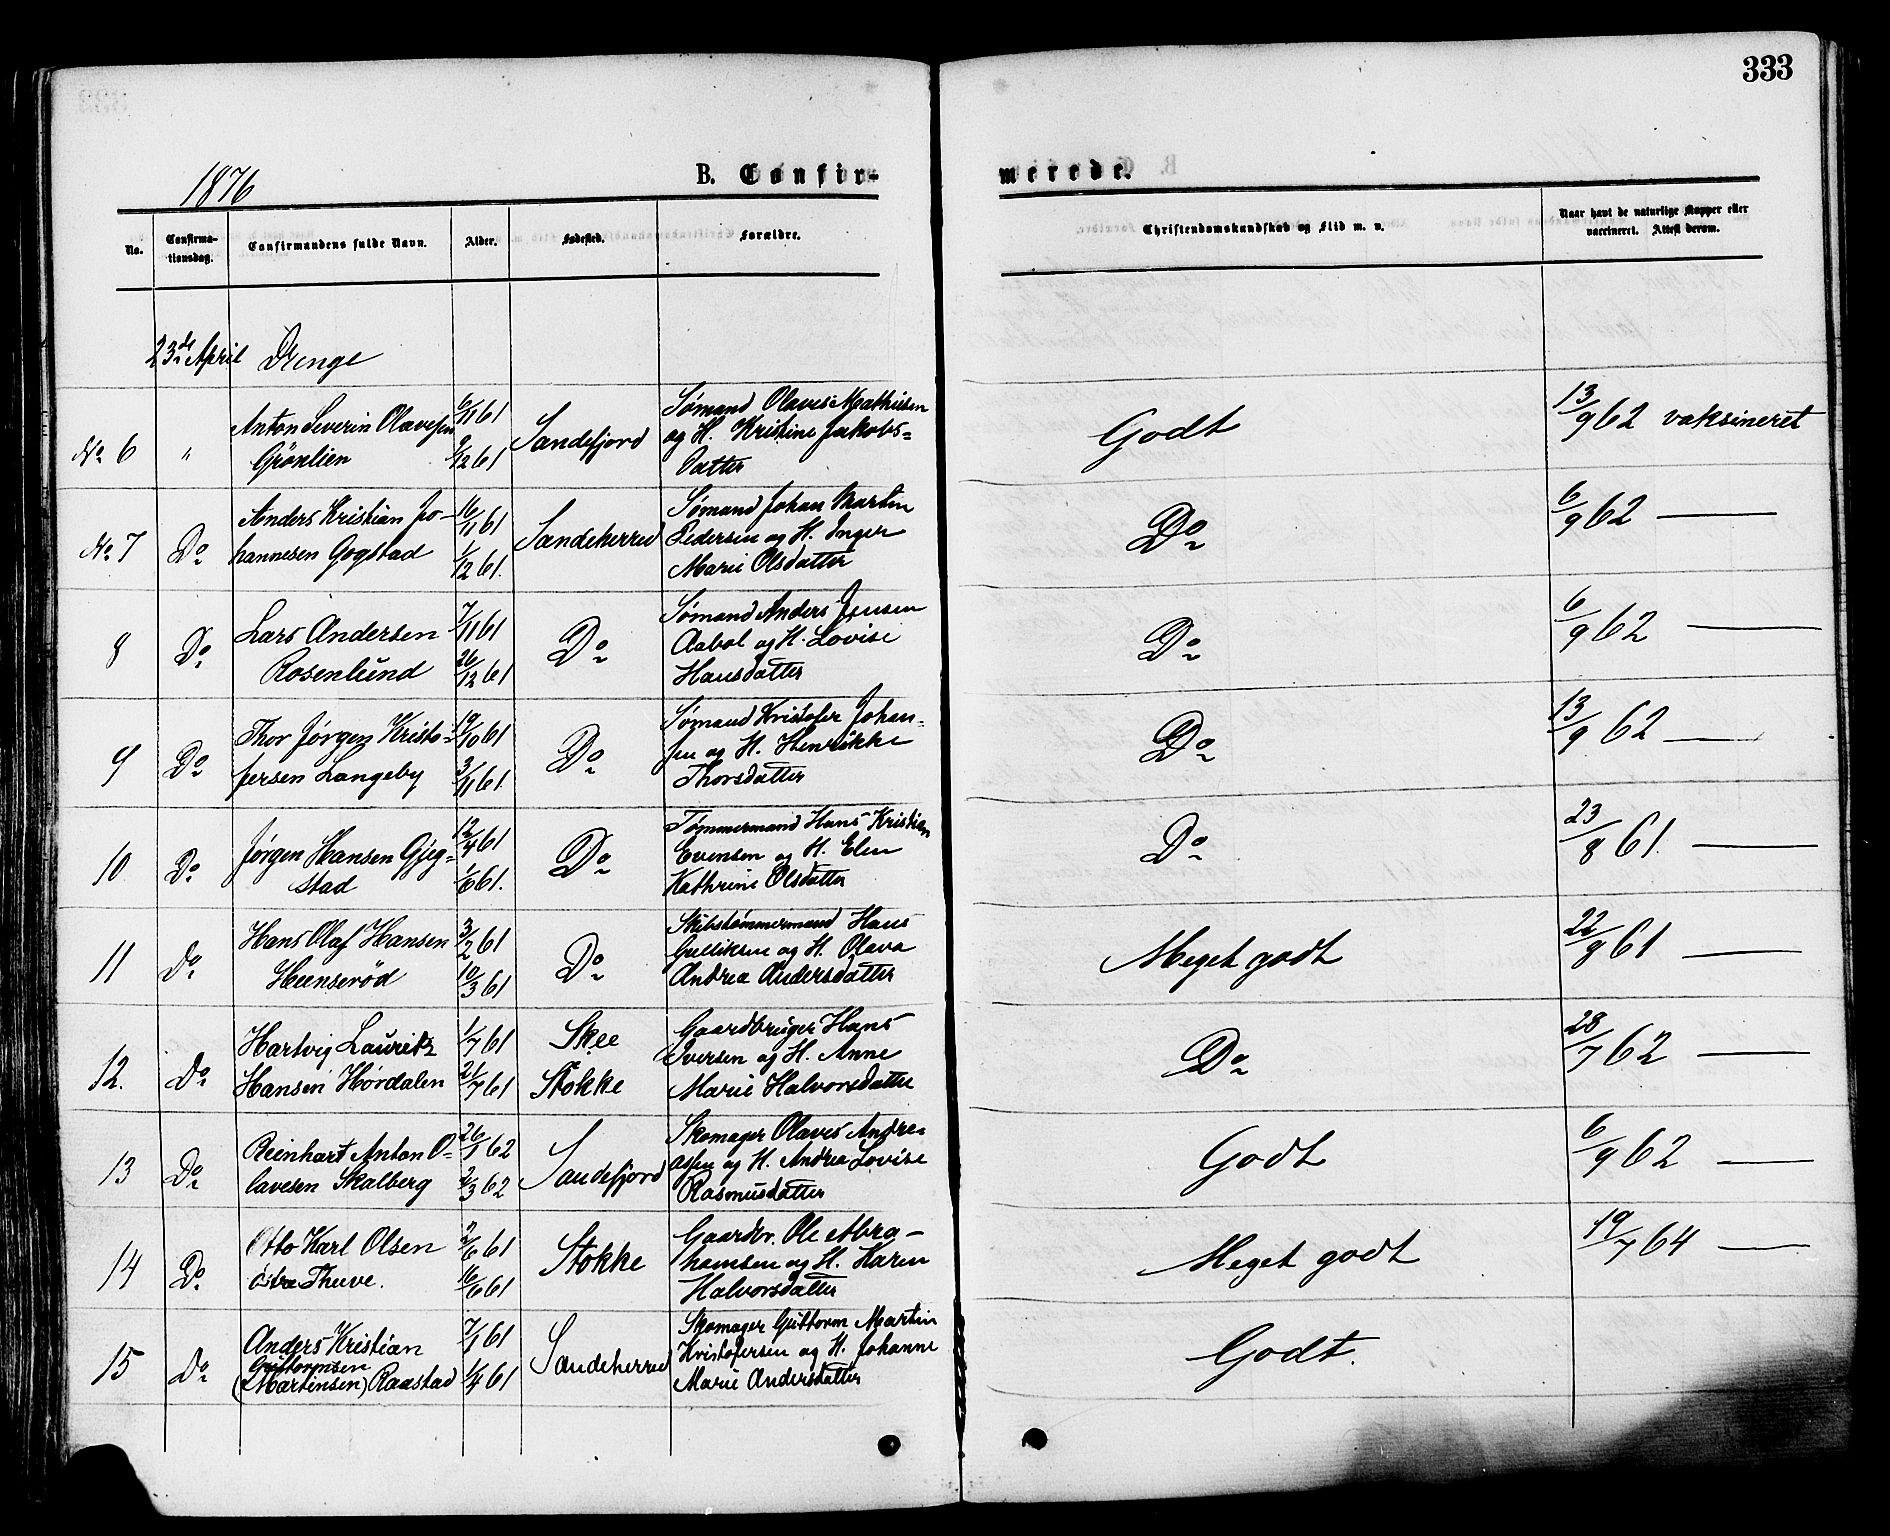 333
1876
B. Confir-
merede.
No.
Confirma-
tionsdag.
Confirmandens fulde Navn.
Alder.
Fødested.
Forældre.
Christendomskundskab og Flid m. v.
Naar havt de naturlige Kopper eller
vaccineret. Attest derom.
23de April Drenge
No 6 "
Anton Severin Olavesen
Grönlien
6/11 61
9/12 61
Sandefjord
Sømand Olaves Mathisen
og H. Kristine Jakobs=
Datter
Godt
13/9 62 vaksineret
No 7 Do
Anders Kristian Jo-
hannesen Gogstad
16/11 61
1/12 61.
Sandeherred
Sømand Johan Martin
Pedersen og H. Inger
Marie Olsdatter
Do
6/9 62 —
8 Do
Lars Andersen
Rosenlund
7/11 61
26/12 61
Do
Sømand Anders Jensen
Aabol og H. Lovise
Hansdatter
Do
6/9 62 —
9 Do
Thor Jørgen Kristo-
fersen Langeby
19/10 61
3/11 61.
Do
Sømand Kristofer Johan-
sen og H. Henrikke
Thorsdatter
Do
13/9 62 —
10 Do
Jørgen Hansen Gjeg-
stad
12/4 61
1/6 61.
Do
Tømmermand Hans Kristian
Evensen og H. Elen
Kathrine Olsdatter
Do
23/8 61. —
11 Do
Hans Olaf Hansen
Hunserød
3/2 61
10/3 61
Do
Skibstømmermand Hans
Gulliksen og H. Olava
Andrea Andersdatter
Meget godt
22/8 61 —
12. Do
Hartvig Lauritz
Hansen Hørdalen
1/7 61
21/7 61
Skee
Stokke
Gaardbruger Hans
Iversen og H. Anne
Marie Halvorsdatter
Do
28/7 62 —
13 Do
Reinhart Anton O-
lavesen Skalberg
26/1 62
2/3 62
Sandefjord
Skomager Olaves Andre-
assen og H. Andrea Lovise
Rasmusdatter
Godt
6/9 62 —
14 Do
Otto Karl Olsen
østre Thuve.
2/6 61
16/6 61
Stokke
Gaardbr. Ole Abra-
hamsen og H. Karen
Halvorsdatter
Meget godt
19/7 64 —
15 Do
Anders Kristian
Guttormsen
(Martinsen) Raastad
7/1 61
1/4 61
Sandeherred
Skomager Guttorm Martin
Kristofersen og H. Johanne
Marie Andersdatter
Godt.